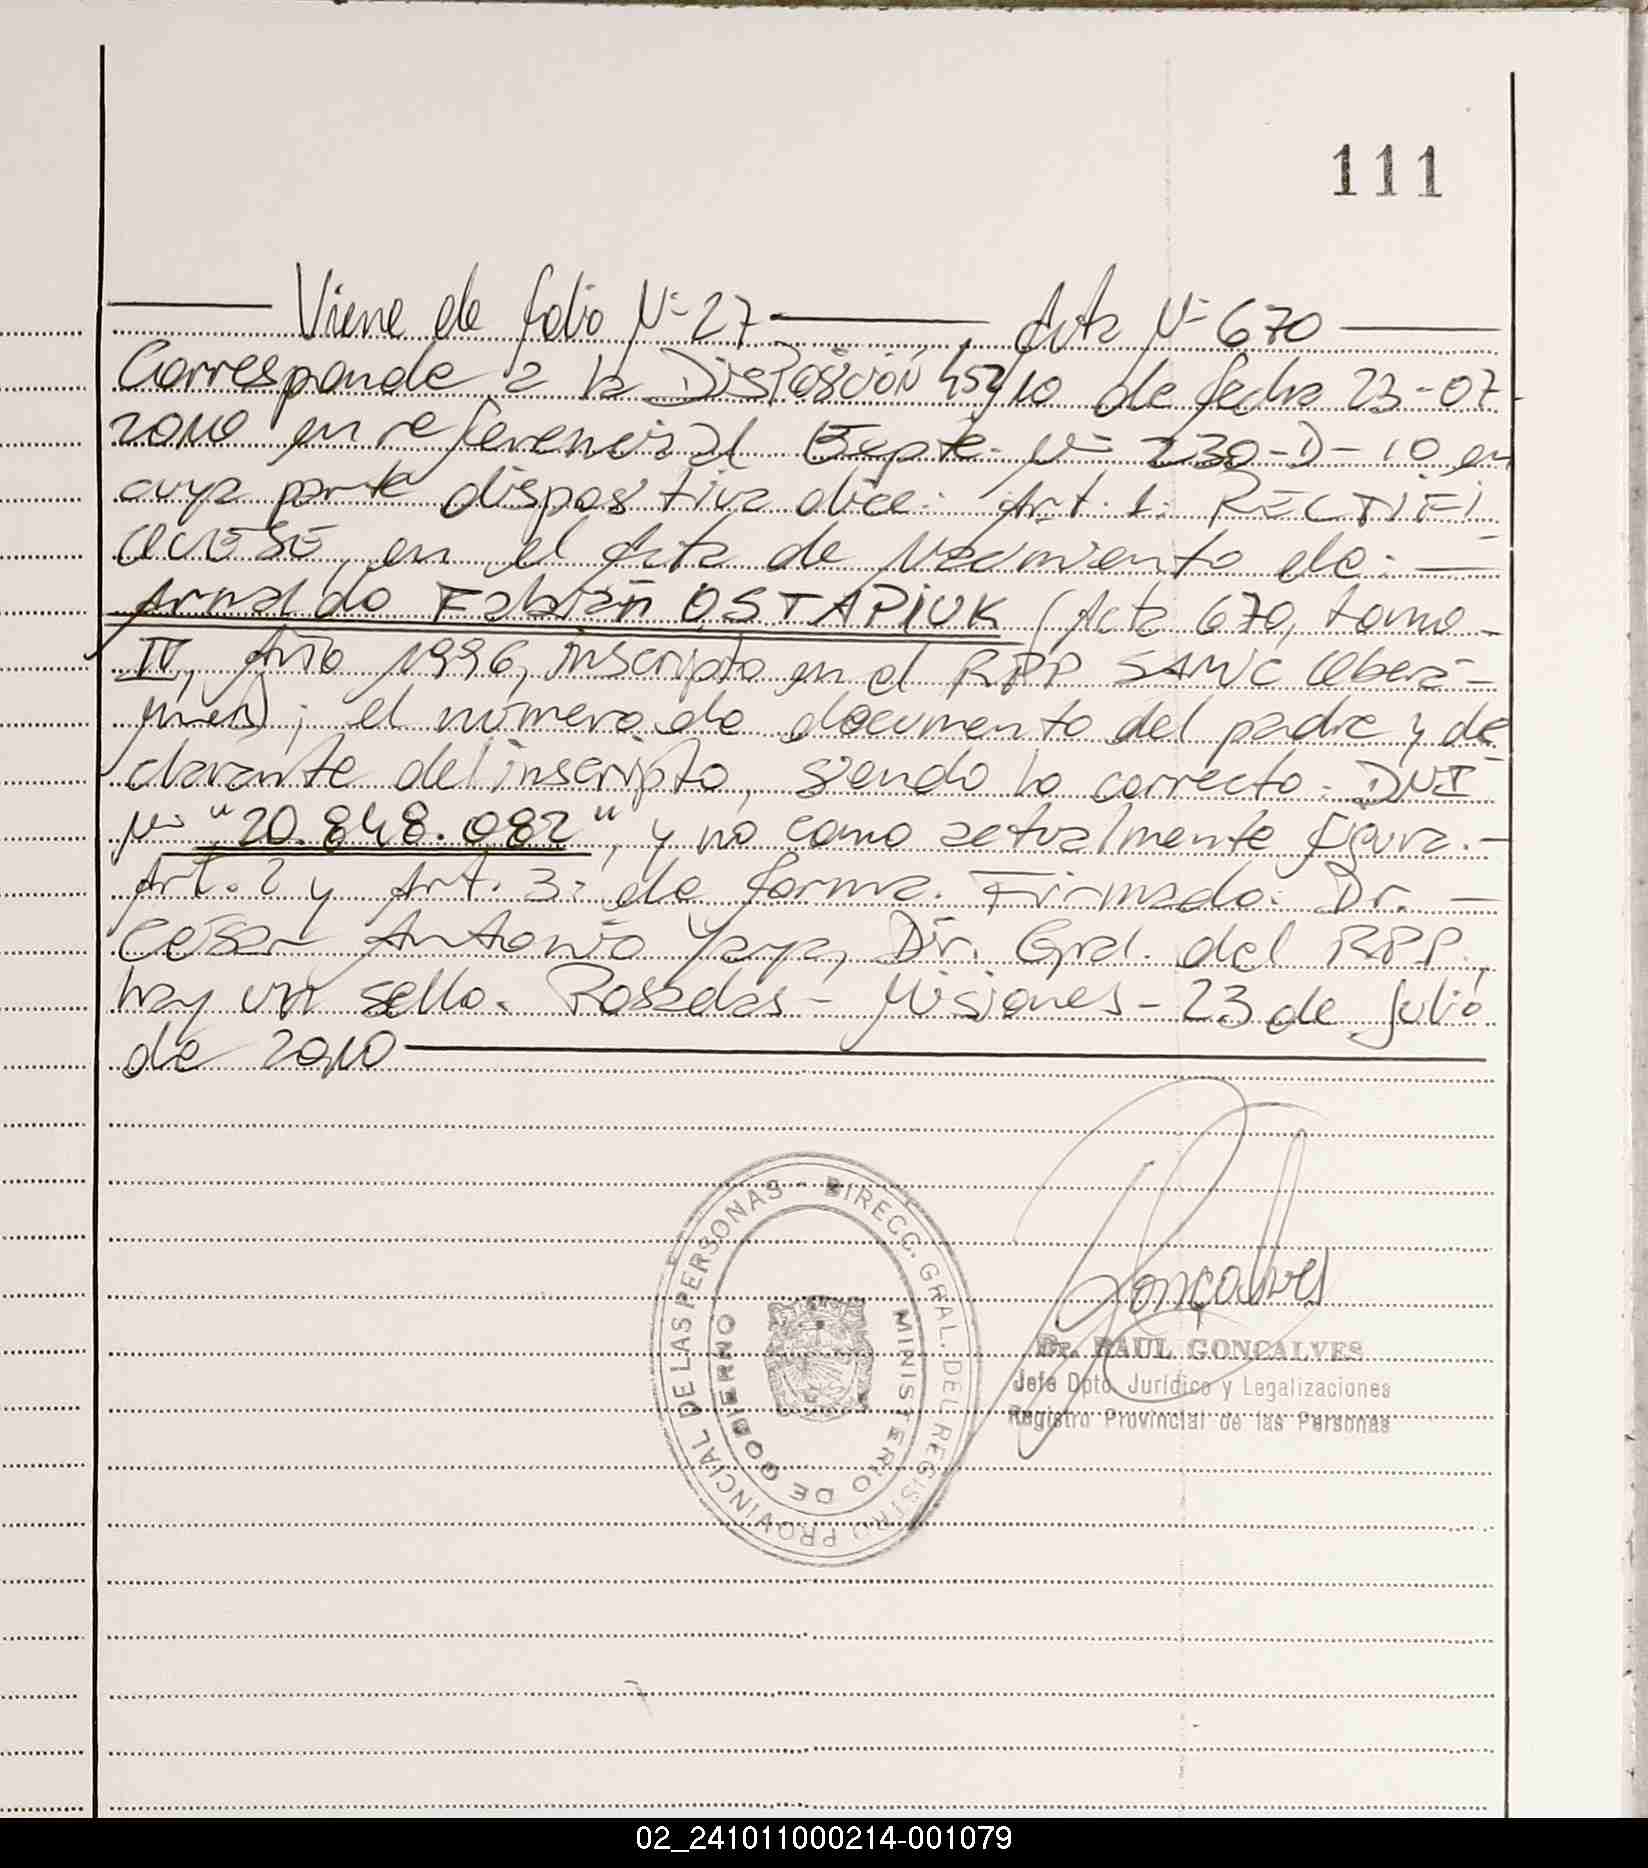 111
Viene de folio Nº 27 Acta Nº 670
Corresponde a la Disposición 452/10 de fecha 23-07-
2010 en referencia al Expte. Nº 230-D-10 en
cuya parte dispositiva dice: Art. 1: RECTIFI
QUESE, en el Acta de Nacimiento de:
Arnaldo Fabián OSTAPIUK (Acta 670, tomo
IV, Año 1996, inscripto en el RPP SANIC Oberá-
Mnes); el número de documento del padre y de
clarante del inscripto, siendo lo correcto: DNI
Nº "20.848.082", y no como actualmente figura.-
Art. 2 y Art. 3: de forma. Firmado: Dr. -
César Antonio Yaya, Dir. Gral. del RPP.
hay un sello. Posadas - Misiones - 23 de Julio
de 2010
DIRECC. GRAL. DEL REGISTRO PROVINCIAL DE LAS PERSONAS -
MINISTERIO DE GOBIERNO
Goncalves
Dr. RAUL GONCALVES
Jefe Dpto. Jurídico y Legalizaciones
Registro Provincial de las Personas
02_241011000214-001079